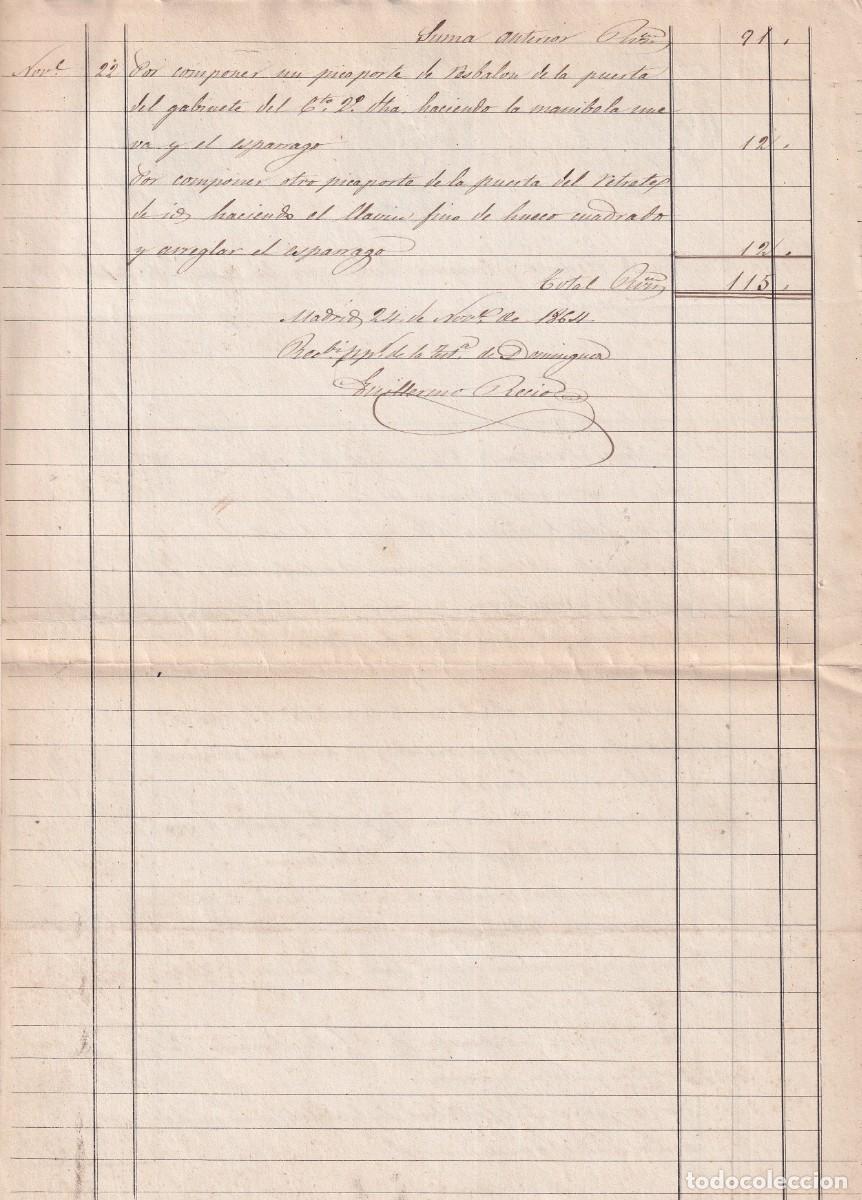 Suma anterior Rvn 91.
Nove. 22 Por componer un picaporte de Resbalon de la puerta
del gabinete del Cto. 2º dha. haciendo la manibela nue-
va y el esparrago 12.
Por componer otro picaporte de la puerta del Retrete
de id haciendo el llavin fino de hueco cuadrado
y arreglar el esparrago 12.
Total Rvn 115.
Madrid 24 de Nove. de 1864
Recibí de la de Dominguez
Guillermo Recio
todocoleccion.net